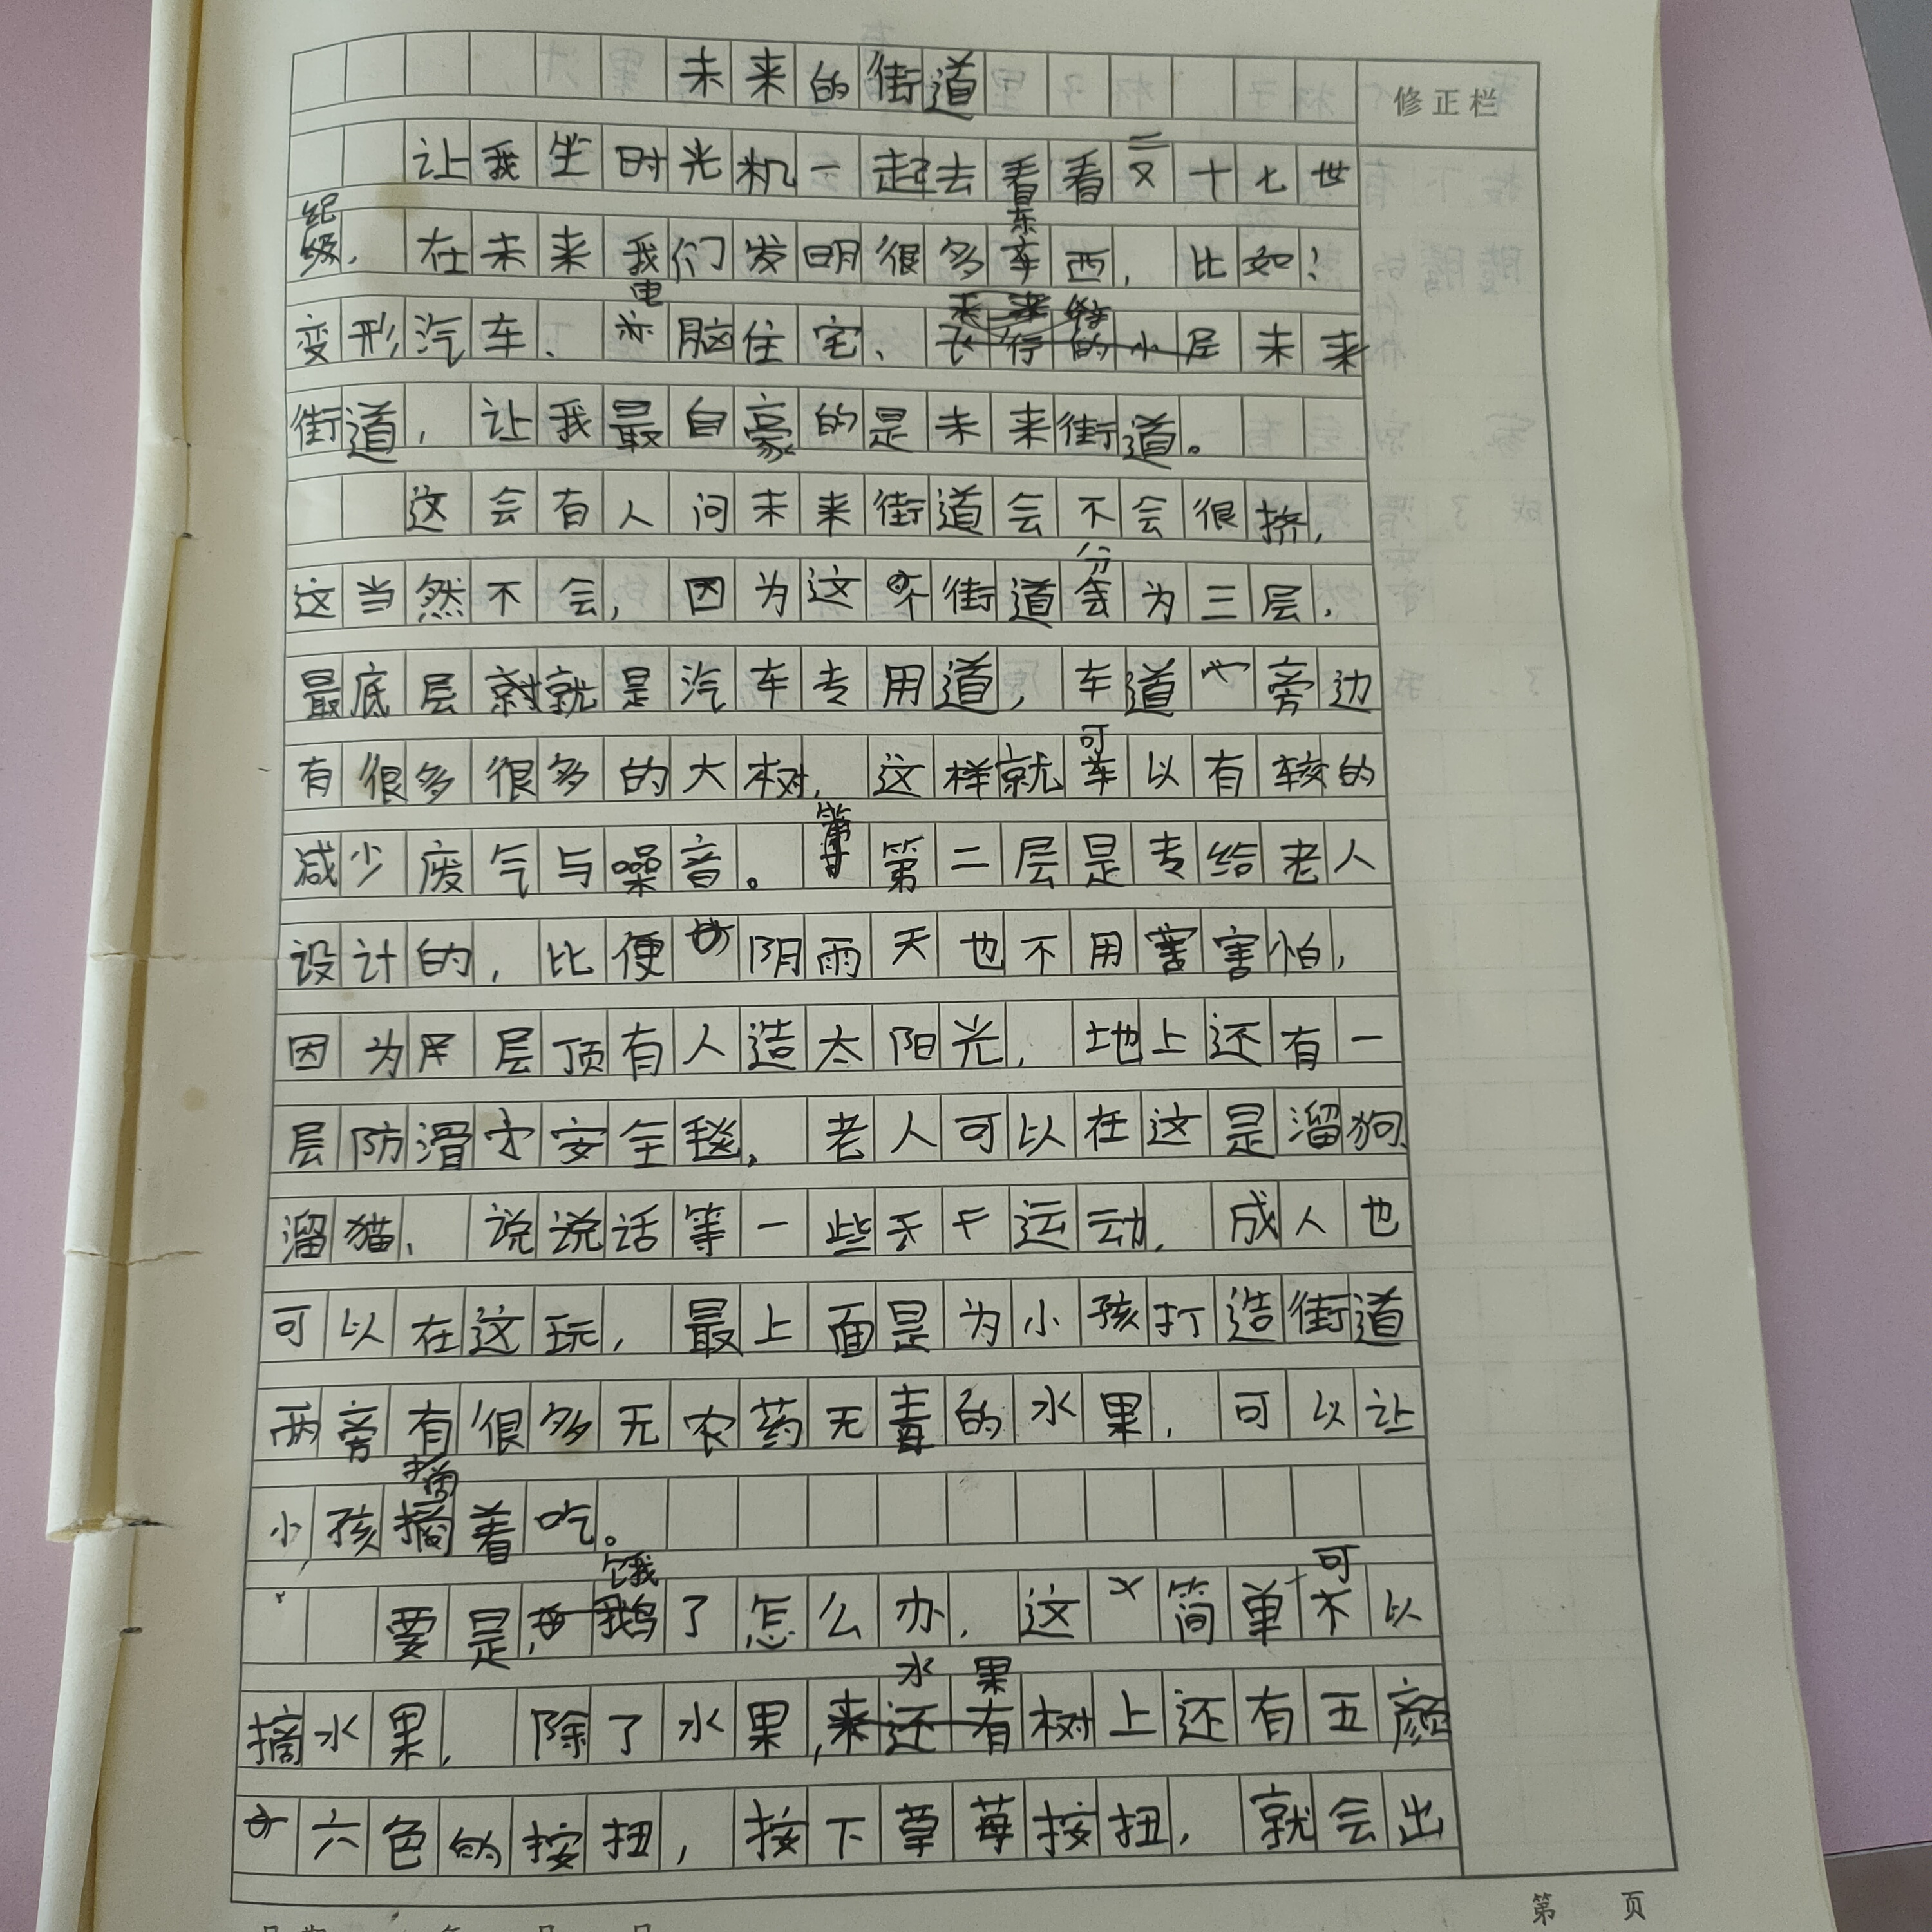 未来的街道
修正栏
让我坐时光机一起去看看二十七世
纪，在未来我们发明很多东西，比如：
变形汽车、电脑住宅、未来
街道，让我最自豪的是未来街道。
这会有人问未来街道会不会很挤，
这当然不会，因为这个街道分为三层，
最底层就是汽车专用道，车道旁边
有很多很多的大树，这样就可以有较的
减少废气与噪音。第二层是专给老人
设计的，比便阴雨天也不用害怕，
因为层顶有人造太阳光，地上还有一
层防滑安全毯，老人可以在这是溜狗
溜猫、说说话等一些运动，成人也
可以在这玩，最上面是为小孩打造街道
两旁有很多无农药无毒的水果，可以让
小孩摘着吃。
要是饿了怎么办，这简单可以
摘水果，除了水果，水果树上还有五颜
六色的按扭，按下草莓按扭，就会出
第 页